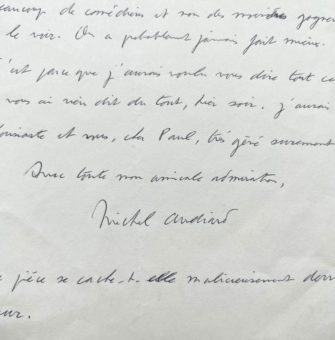 beaucoup de comédiens et non des moindres gagner
le voir. On a probablement jamais fait mieux.
c'est parce que j'aurais voulu vous dire tout ce
vous ai rien dit du tout, hier soir. J'aurais
et vous, cher Paul, très gêné surement
Avec toute mon amicale admiration,
Michel Audiard
pièce se cache-t-elle malicieusement derr
eur.